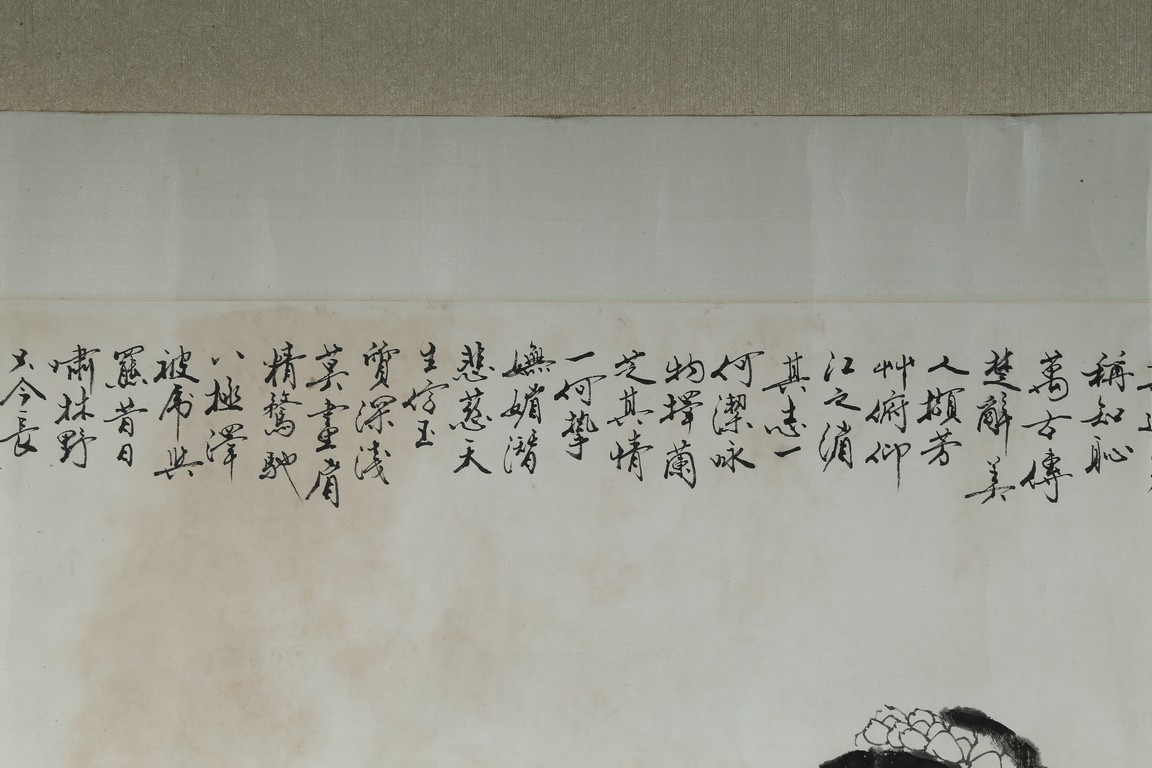 稱知恥
萬古傳
楚辭美
人擷芳
艸俯仰
江之湄
其志一
何潔咏
物擇蘭
芝其情
一何摯
嫵媚潛
悲慈天
生仔玉
質深淺
莫畫眉
精騖馳
八極澤
被虎與
羆昔日
嘯林野
只今長